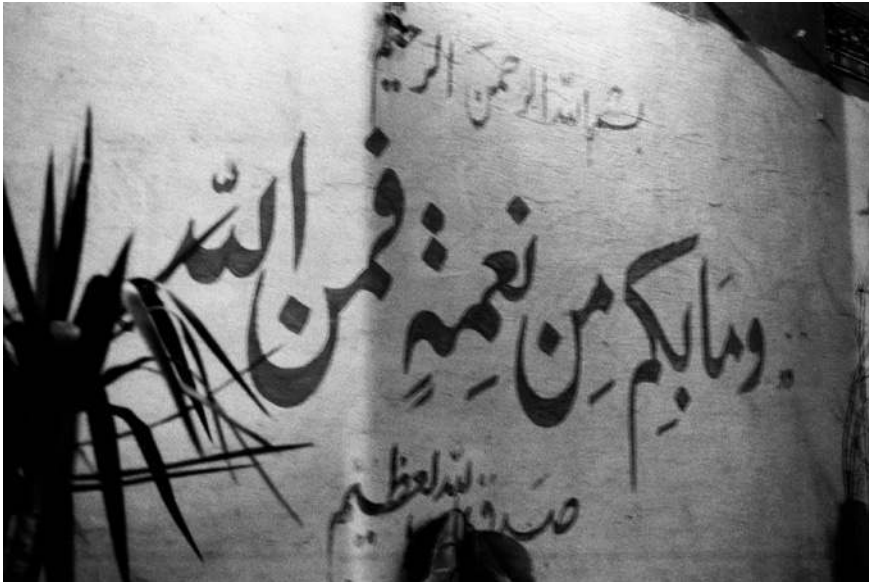 بسم الله الرحمن الرحيم
وَمَا بِكم مِن نعمِةٍ فمن الله
صَدق الله العظيم